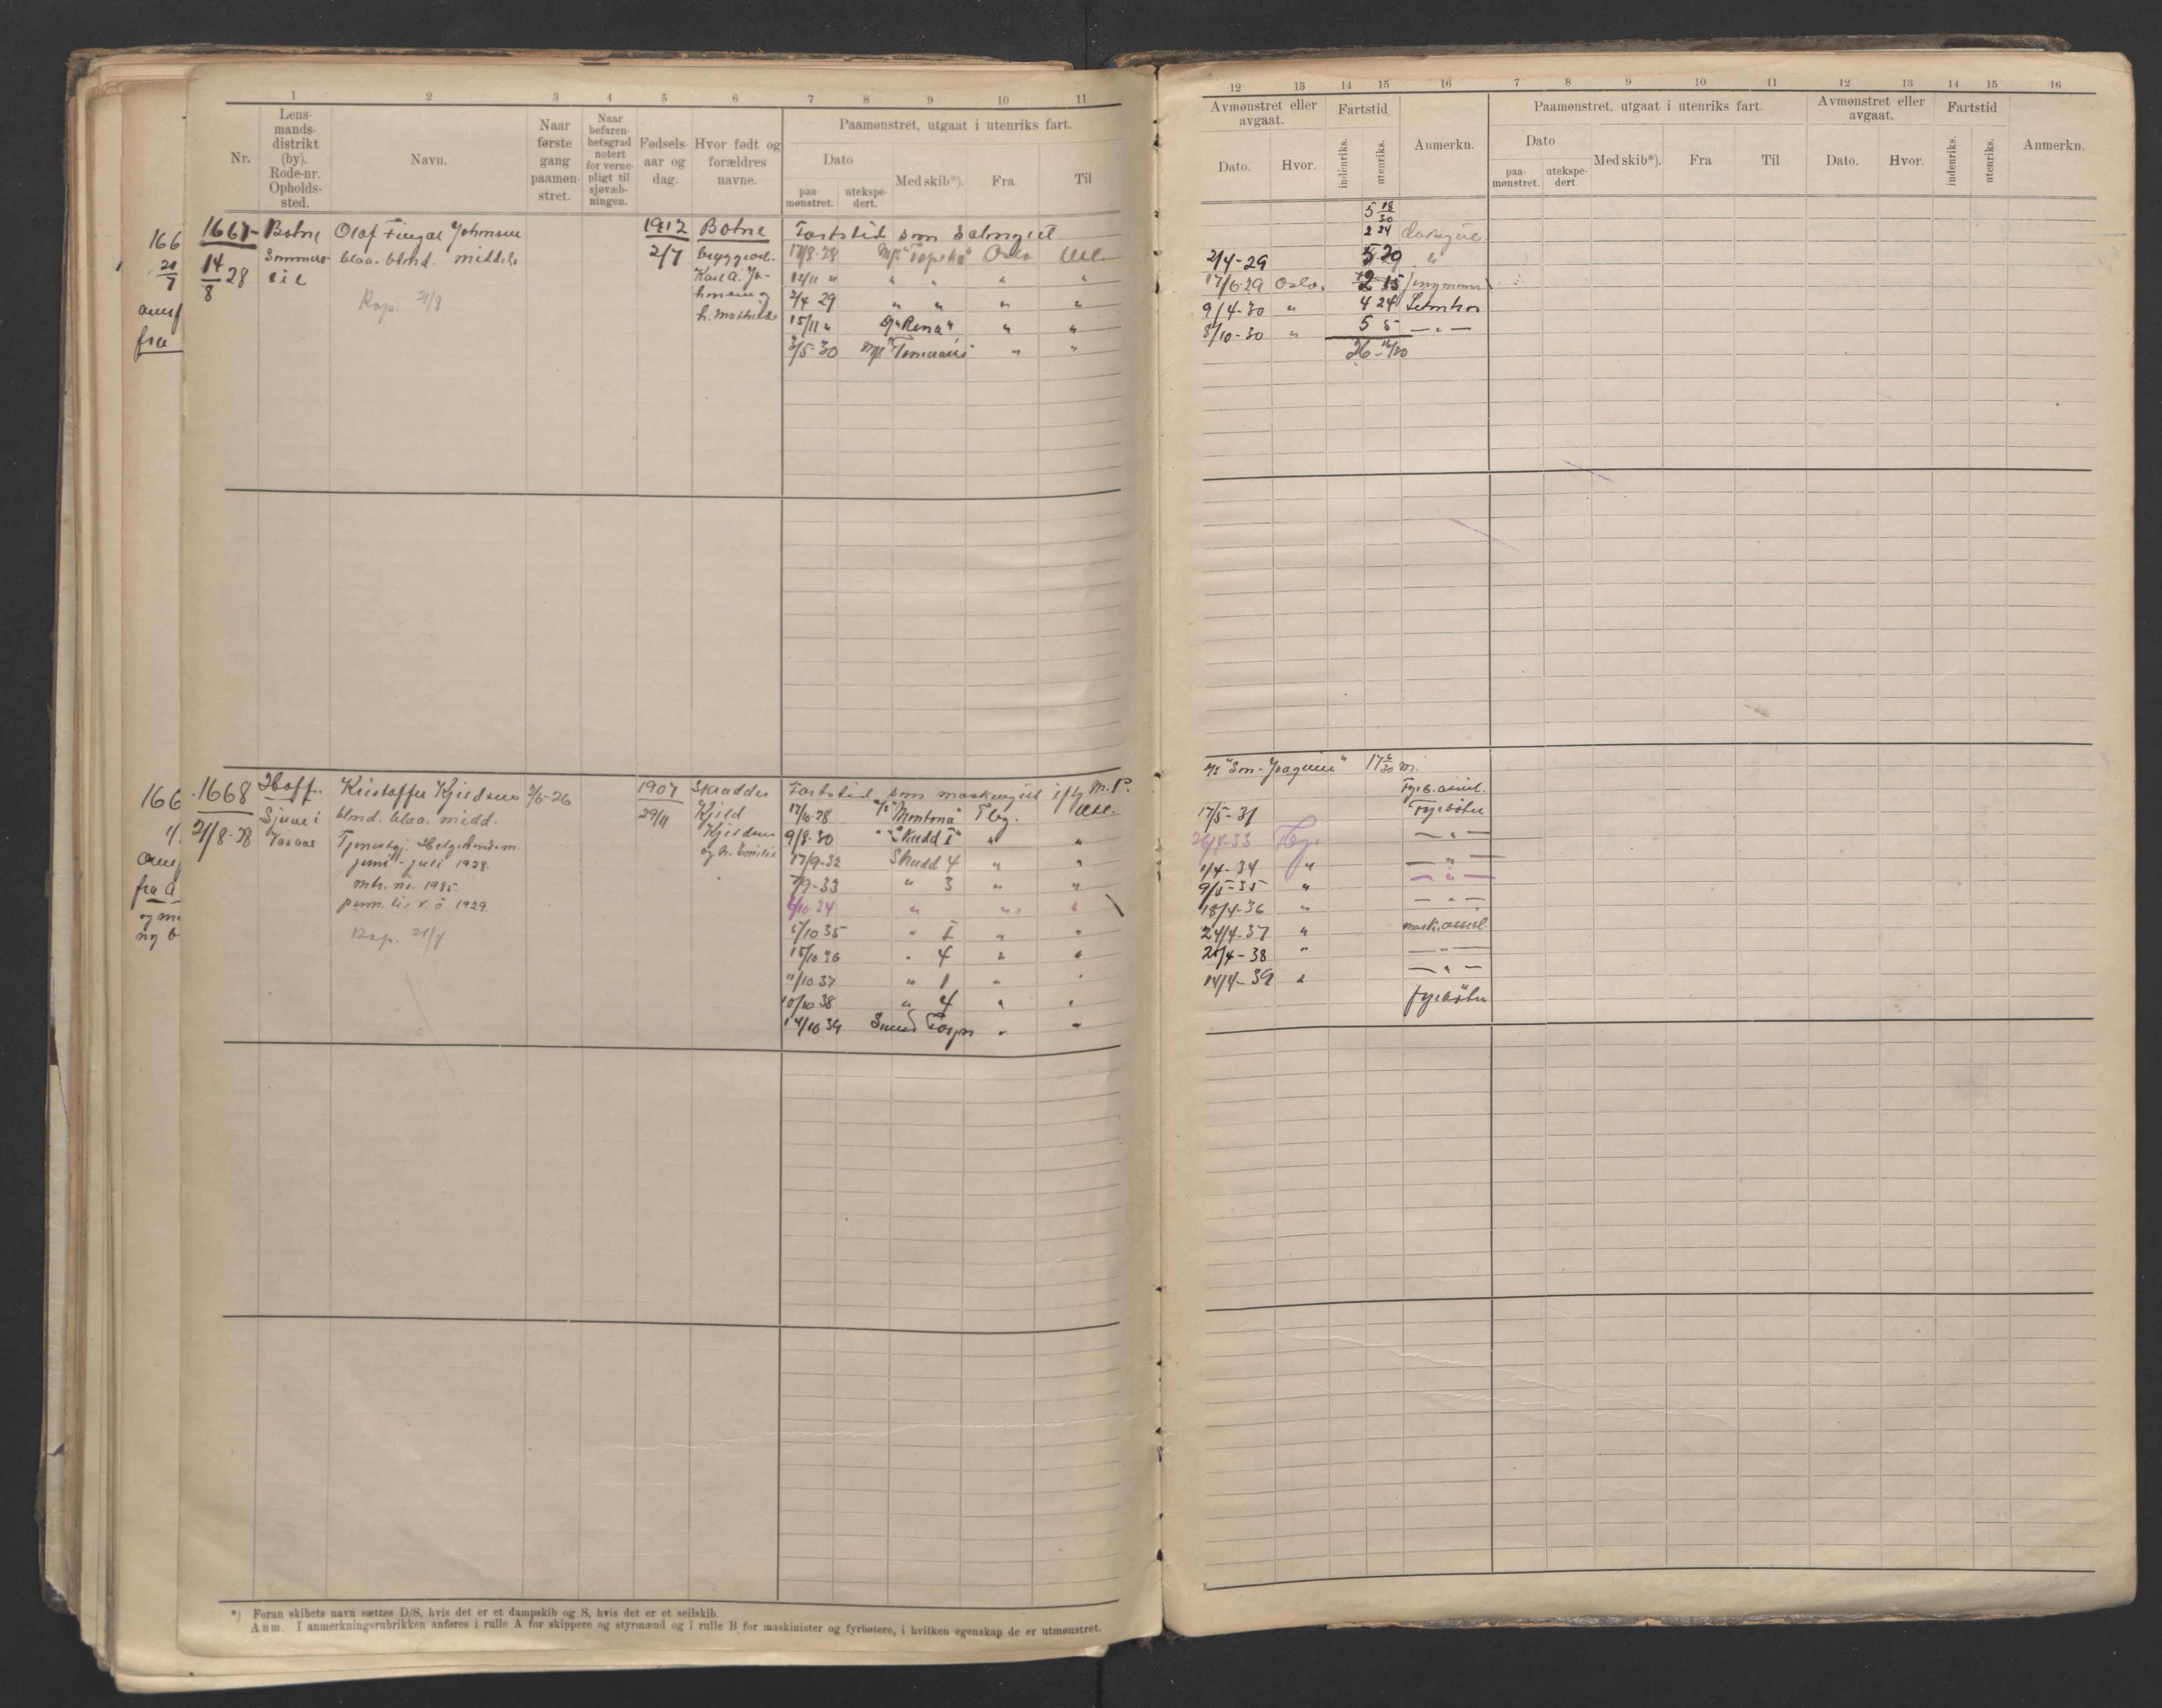 1 2 3 4 5 6 7 8 9 10 11
Nr. Lens-mands-distrikt (by). Rode-nr. Opholds-sted. Navn. Naar første gang paamøn-stret. Naar befaren-hetsgrad notert før verne-pligt til sjøvæb-ningen. Fødsels-aar og dag. Hvor født og forældres navne. Paamønstret, utgaat i utenriks fart.
Dato Med skib*). Fra Til
paa-mønstret. utekspe-dert.
1667 Botne Olaf Fingal Johnsen 1912 Botne Fartstid som
14/8 28 blaa. blond. middels 2/7 bryggearb. 17/8-28 M/S "Topeka" Oslo Utl
Rap. 21/8 Karl A. Jo- 12/11 " " " " "
hnsen og 2/4 29 " " " "
h. Mathilde 15/11 " D/S "Rena" " "
3/5-30 M/S " "
1668 Hoff. Kristoffer Kjeldsen 2/5-26 1907 Skrædder Fartstid som i flg M.P.
21/8-28 blond. blaa. midd. 29/11 Kjeld 17/6-28 "Montana" Tbg. Utl.
Kjeldsen 9/8-30 " "Skudd I" " "
juni - juli 1928. og h. Emilie 17/9-32 Skudd 4 " "
mtr. nr. 1985. 7/9-33 " 3 " "
1929. 6/10 34 " " "
Rap. 21/8 5/10 35 " I " "
15/10 36 " 4 " "
11/10 37 " 1 " "
10/10 38 " 4 " "
14/10 39 "
*) Foran skibets navn sættes D/S, hvis det er et dampskib og S, hvis det er et seilskib.
Anm. I anmerkningsrubrikken anføres i rulle A for skippere og styrmænd og i rulle B for maskinister og fyrbøtere, i hvilken egenskap de er utmønstret.
166
21/7
fra
166
fra
12 13 14 15 16 7 8 9 10 11 12 13 14 15 16
Avmønstret eller avgaat. Fartstid Anmerkn. Paamønstret, utgaat i utenriks fart. Avmønstret eller avgaat. Fartstid Anmerkn.
Dato. Hvor. indenriks. utenriks. Dato Med skib*). Fra Til Dato. Hvor. indenriks. utenriks.
paa-mønstret. utekspe-dert.
5 18/30
2 24
2/4-29 5 29 "
17/6-29 Oslo. 2 15
9/4-30 " 4 24
8/10-30 " 5 5 — " —
m.
Fyrb. assist.
17/5-31 Fyrbøter
26/4-33 Tbg. — " —
1/4-34 " — " —
9/5-35 " — " —
18/4-36 " — " —
24/4-37 " mask. assist.
25/4-38 " — " —
14/4-39 " — " —
fyrbøter